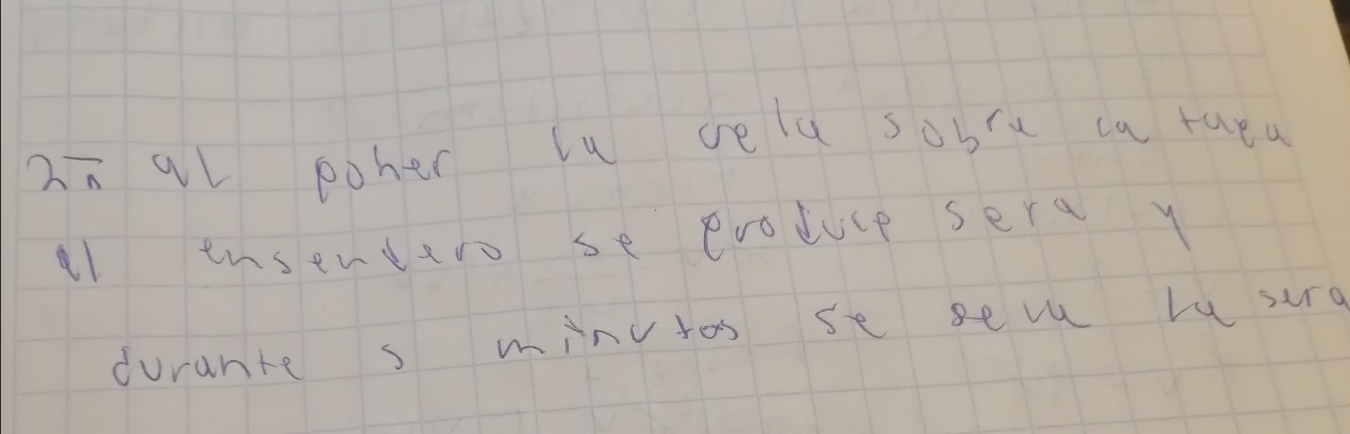 2ñ al poner la vela sobra la tapa
al ensendero se produce sera y
durante 5 minutos se seca la sera